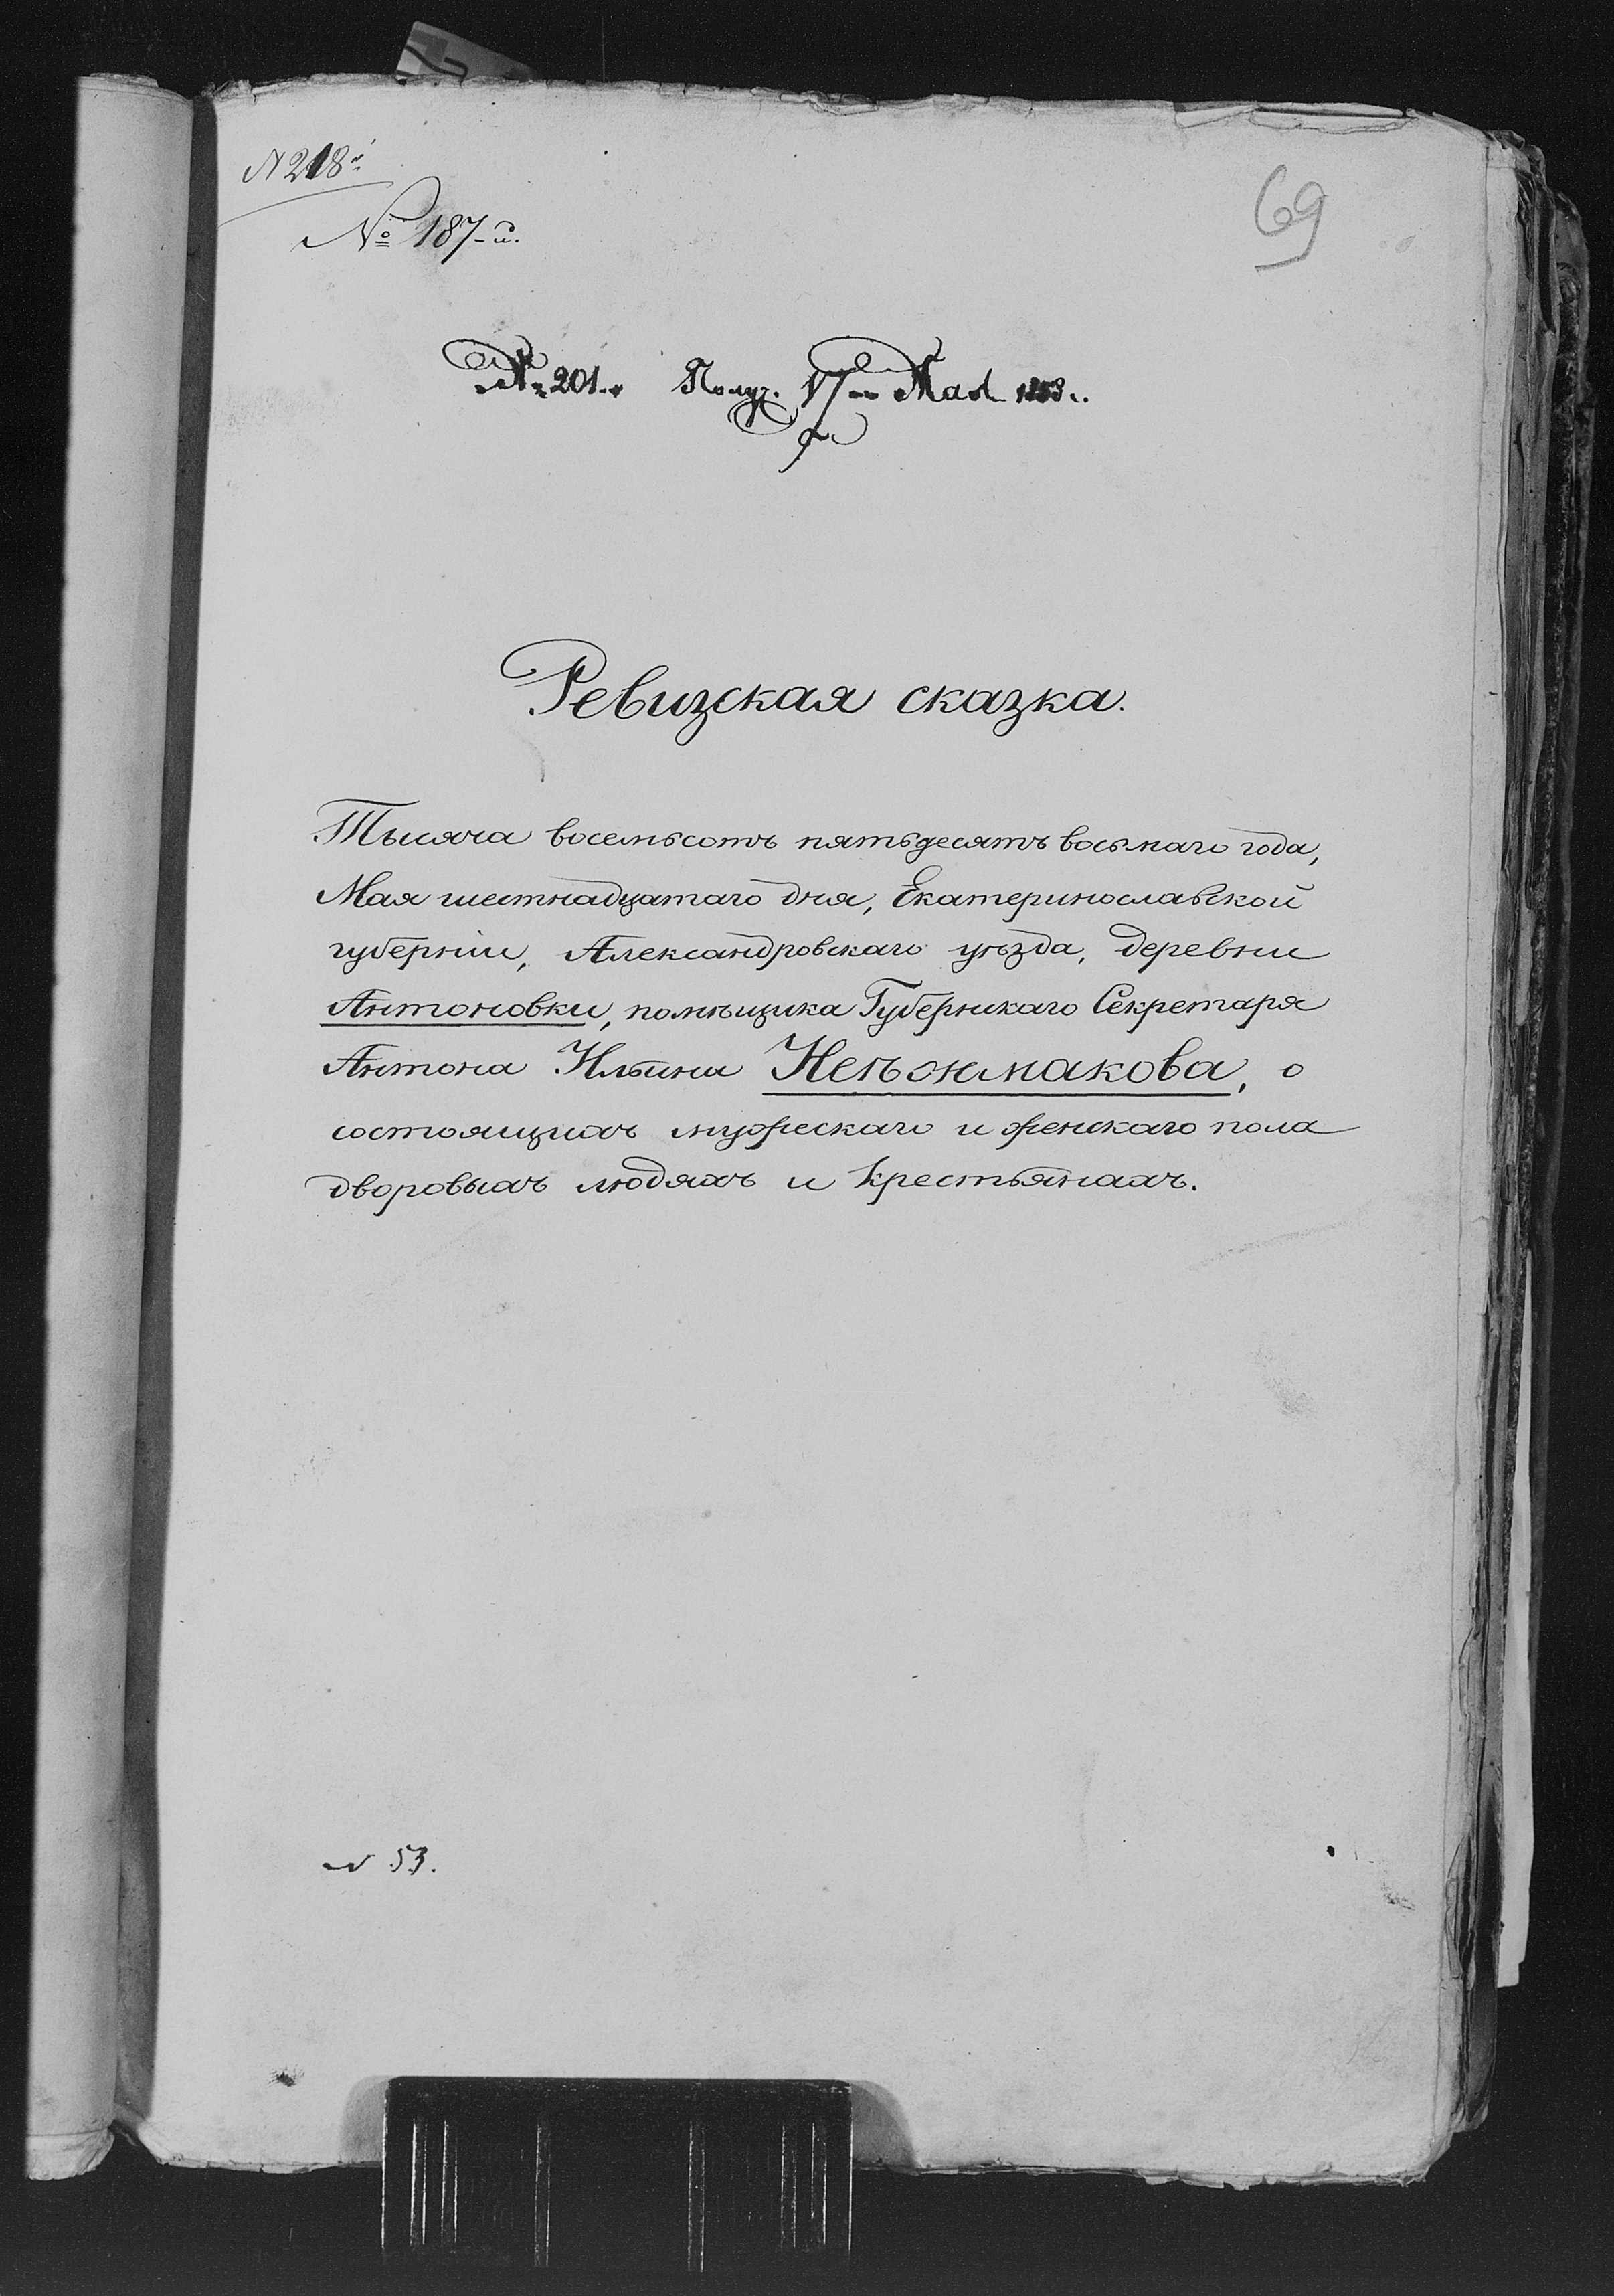 N 218й
69
№ 187-й.
№ 201. Получ. 17 Мая 1858 г.
Ревизская сказка.
Тысяча восемьсотъ пятьдесятъ восьмаго года,
Мая шестнадцатаго дня, Екатеринославской
губерніи, Александровскаго уѣзда, деревни
Антоновки, помѣщика Губернскаго Секретаря
Антона Ильина Нѣжмакова, о
состоящихъ мужескаго и женскаго пола
дворовыхъ людяхъ и крестьянахъ.
N 53.